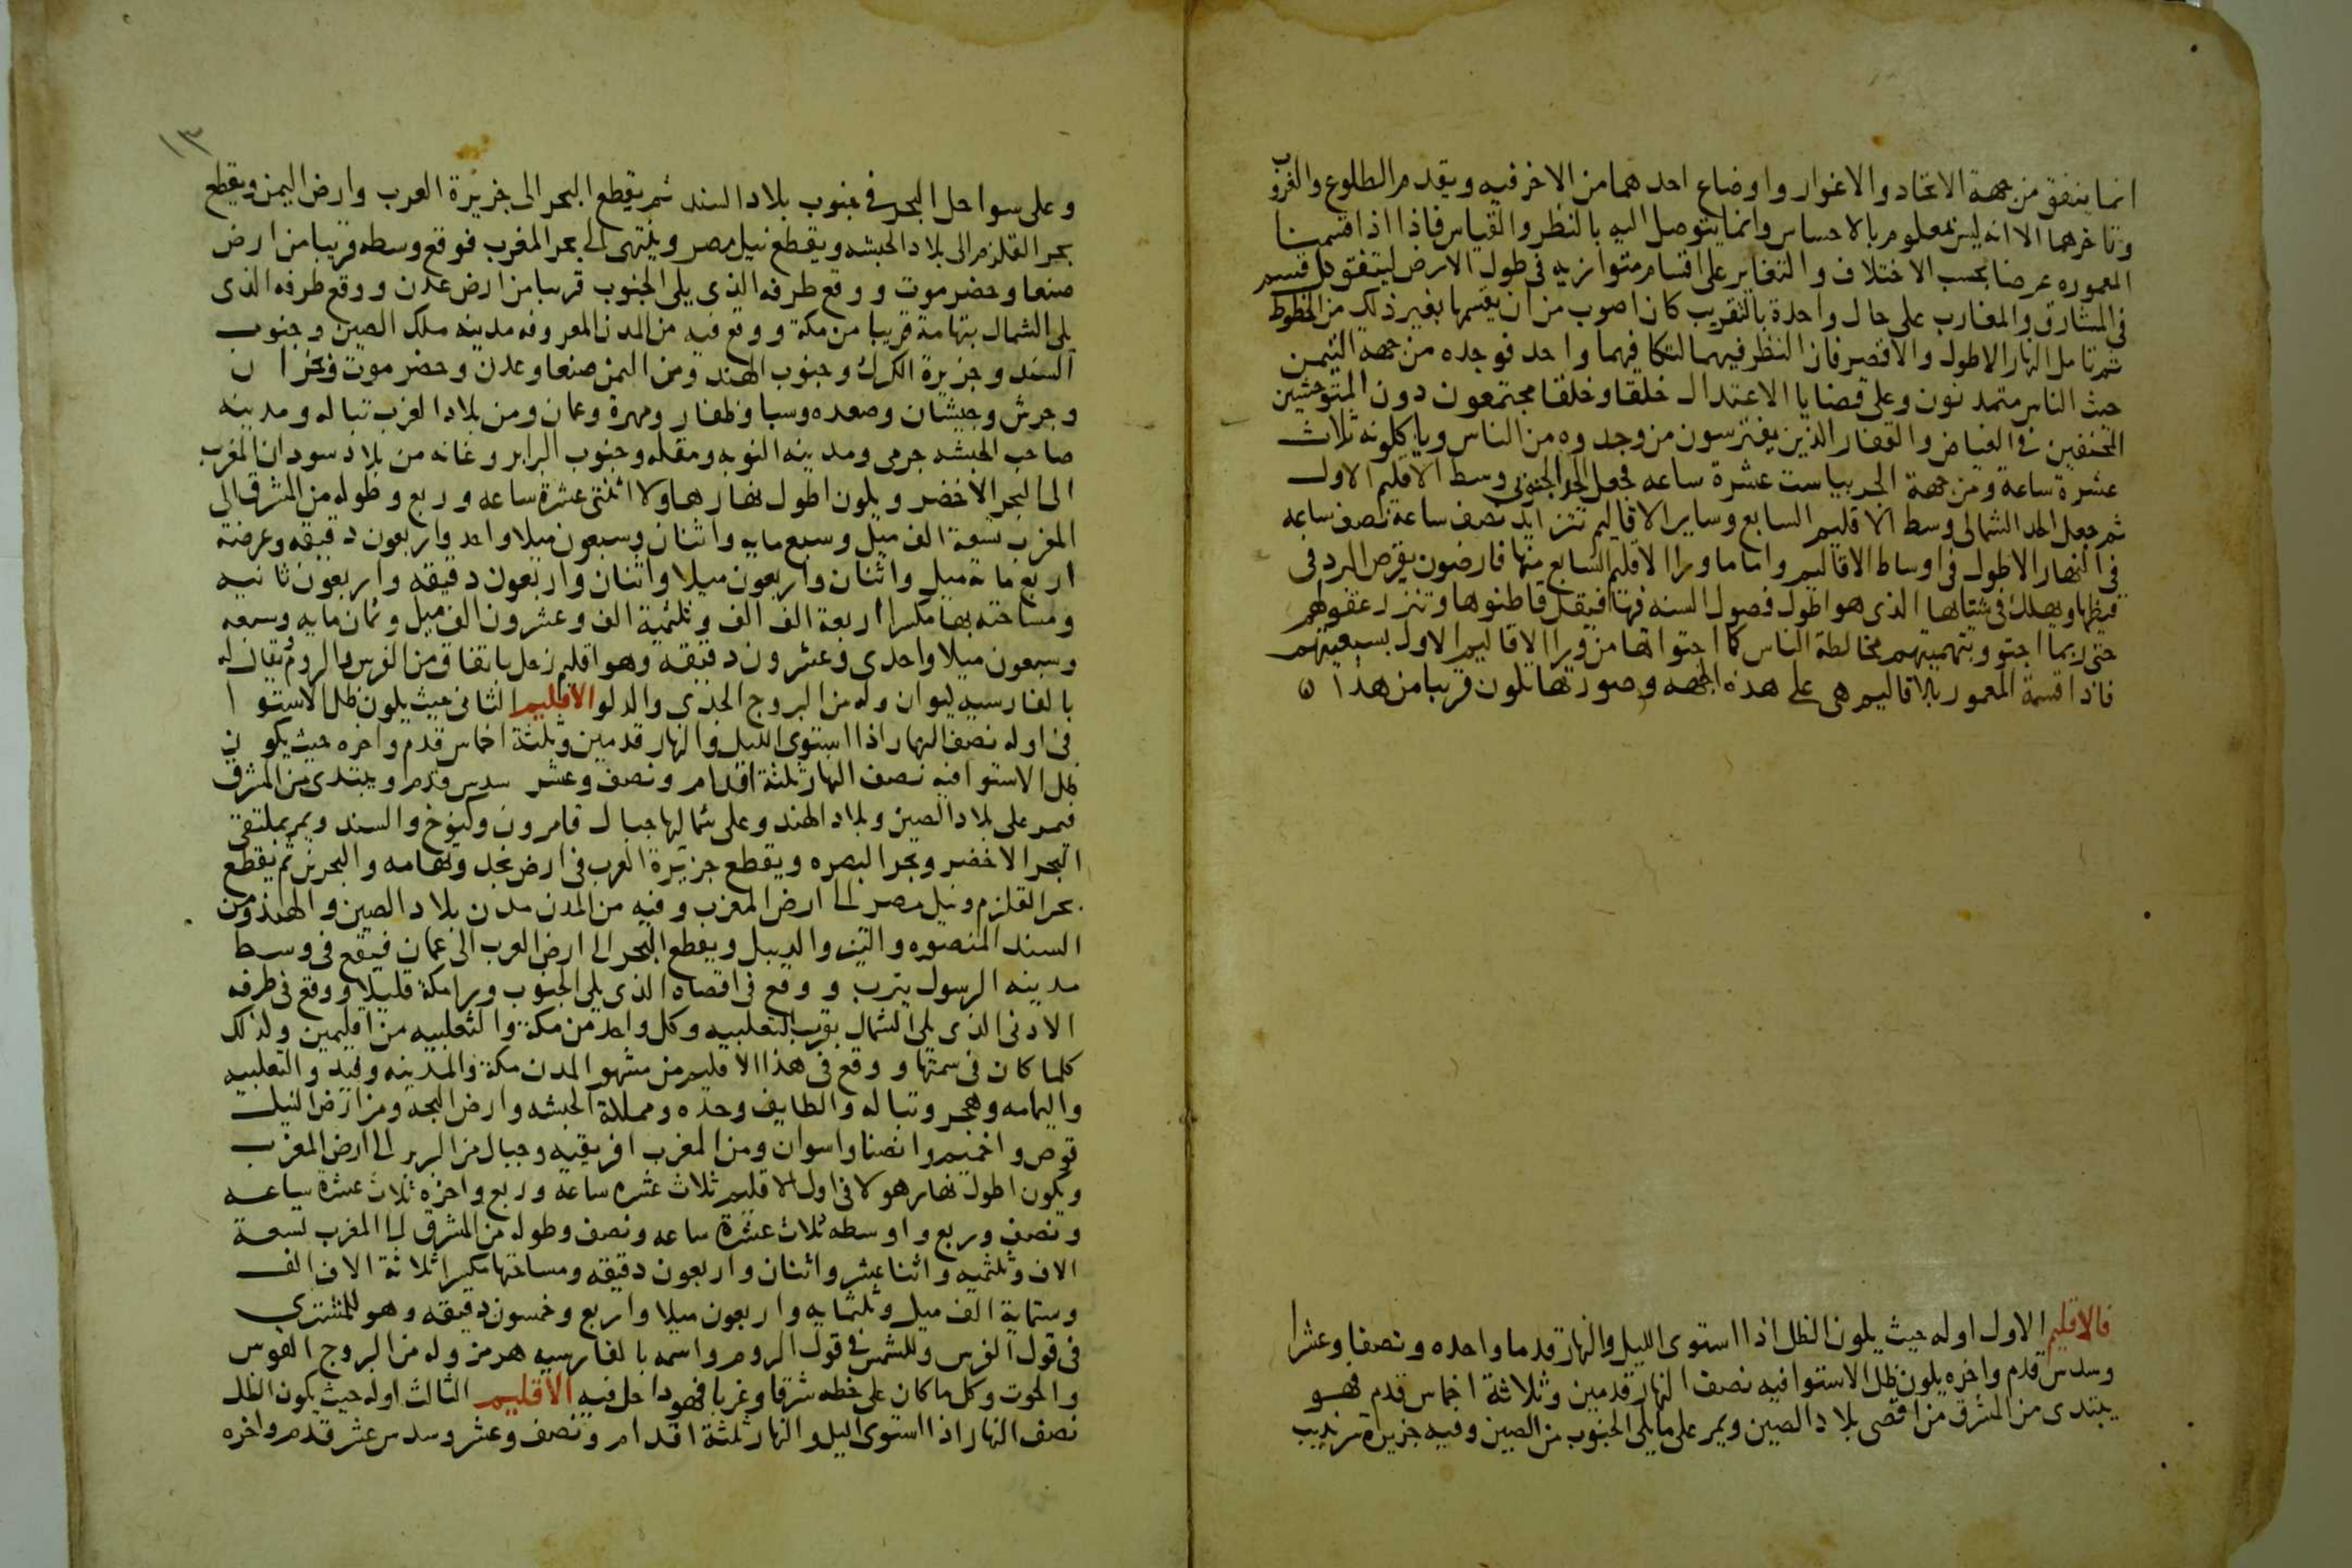 انما يتفق من جهة الانجاد والاغوار واوضاع احدهما من الاخر فيه ويقدم الطلوع والغروب
وتاخرهما الا انه ليس بمعلوم بالاحساس وانما يتوصل اليه بالنظر والقياس فاذا اذا اقتسمنا
المعموره عرضا بحسب الاختلاف والتغاير على اقسام متوازيه فى طول الارض ليتفق كل قسم
فى المشارق والمغارب على حال واحدة بالتقريب كان اصوب من ان يقسمها بغير ذلك من الخطوط
ثم تامل النهار الاطول والاقصر فان النظر فيهما لتكافيهما واحد فوجده من جهة التيمن
حيث الناس متمدنون وعلى قضايا الاعتدال خلقا وخلقا مجتمعون دون المتوحشين
المختفين فى الغياض والقفار الذين يفترسون من وجدوه من الناس وياكلونه ثلاث
عشرة ساعة ومن جهة الجربيا ست عشرة ساعه فجعل الحد الجنوبى وسط الاقليم الاول
ثم جعل الحد الشمالى وسط الاقليم السابع وساير الاقاليم تتزايد نصف ساعة نصف ساعه
فى النهار الاطول فى اوساط الاقاليم واما ما ورا الاقليم السابع منها فارضون يقرص البرد فى
قيظها ويهلك فى شتاها الذى هو اطول فصول السنه فيها فيقل قاطنوها وتنزر عقولهم
حتى ربما اجتووا بتهميتهم مخالطة الناس كما اجتواها من ورا الاقاليم الاول بسبعيتهم
فاذا قسمة المعمور بالاقاليم هى على هذه الجهه وصورتها يكون قريبا من هذا ه
فالاقليم الاول اوله حيث يكون الظل اذا استوى الليل والنهار قدما واحده ونصفا وعشرا
وسدس قدم واخره يكون ظل الاستوا فيه نصف النهار قدمين وثلاثة اخماس قدم فهو
يبتدى من المشرق من اقصى بلاد الصين ويمر على ما يلى الجنوب من الصين وفيه جزيرة سرنديب
١٣
وعلى سواحل البحر فى جنوب بلاد السند ثم يقطع البحر الى جزيرة العرب وارض اليمن ويقطع
بحر القلزم الى بلاد الحبشه ويقطع نيل مصر وينتهى الى بحر المغرب فوقع وسطه قريبا من ارض
صنعا وحضرموت ووقع طرفه الذى يلى الجنوب قريبا من ارض عدن ووقع طرفه الذى
يلى الشمال بتهامة قريبا من مكة ووقع فيه من المدن المعروفه مدينه ملك الصين وجنوب
السند وجزيرة الكرك وجنوب الهند ومن اليمن صنعا وعدن وحضرموت ونجران
وجرش وجيشان وصعده وسبا وظفار ومهرة وعمان ومن بلاد الغرب تباله ومدينه
صاحب الحبشه جرمى ومدينه النوبه ومقله وجنوب البرابر وغانه من بلاد سودان المغرب
الى البحر الاخضر ويكون اطول نهار هاولا اثنتى عشرة ساعه وربع وطوله من المشرق الى
المغرب تسعة الف ميل وسبع مايه واثنان وسبعون ميلا واحد واربعون دقيقه وعرضه
اربع مائة ميل واثنان واربعون ميلا واثنان واربعون دقيقه واربعون ثانيه
ومساحته بها مكسرا اربعة الف الف وثلثمية الف وعشرون الف ميل وثمان مايه وسبعه
وسبعون ميلا واحدى وعشرون دقيقه وهو اقليم زحل باتفاق من الفرس والروم يقال له
بالفارسيه ليوان وله من البروج الجدى والدلو الاقليم الثانى حيث يكون ظل الاستوا
فى اوله نصف النهار اذا استوى الليل والنهار قدمين وثلثة اخماس قدم واخره حيث يكون
ظل الاستوا فيه نصف النهار ثلثة اقدام ونصف وعشر سدس قدم ويبتدى من المشرق
فيمر على بلاد الصين وبلاد الهند وعلى شمالها جبال قامرون وكنوخ والسند ويمر بملتقى
البحر الاخضر وبحر البصره ويقطع جزيرة العرب فى ارض نجد وتهامه والبحرين ثم يقطع
بحر القلزم ونيل مصر الى ارض المغرب وفيه من المدن مدن بلاد الصين والهند ومن
السند المنصوره والديبل ويقطع البحر الى ارض العرب الى عمان فيقع فى وسط
مدينه الرسول يثرب ووقع فى اقصاه الذى يلى الجنوب ورا مكة قليلا ووقع فى طرفه
الادنى الذى يلى الشمال بقرب الثعلبيه وكل واحد من مكة والثعلبيه من اقليمين ولذلك
كلما كان فى سمتها ووقع فى هذا الاقليم من مشهور المدن مكة والمدينه وفيد والثعلبيه
واليمامه وهجر وتباله والطايف وجده ومملكة الحبشه وارض البجه ومن ارض النيل
قوص واخميم وانصنا واسوان ومن المغرب افريقيه وجبال من البربر الى ارض المغرب
ويكون اطول نهار هولا فى اول الاقليم ثلاث عشره ساعه وربع واخره ثلاث عشرة ساعه
ونصف وربع واوسطه ثلاث عشرة ساعه ونصف وطوله من المشرق الى المغرب تسعة
الاف وثلثميه واثنا عشر واثنان واربعون دقيقه ومساحتها مكسرا ثلاثة الاف الف
وستماية الف ميل وثلثمايه واربعون ميلا واربع وخمسون دقيقه وهو للمشترى
فى قول الفرس وللشمس فى قول الروم واسمه بالفارسيه هرمز وله من البروج القوس
والحوت وكل ما كان على خطه شرقا وغربا فهو داخل فيه الاقليم الثالث اوله حيث يكون الظل
نصف النهار اذا استوى اليل والنهار ثلثة اقدام ونصف وعشر وسدس عشر قدم واخره